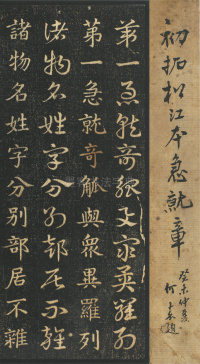 初拓松江本急就章
第一急就奇觚與衆異羅列
第一急就奇觚與衆異羅列
諸物名姓字分別部居不雜
諸物名姓字分別部居不雜